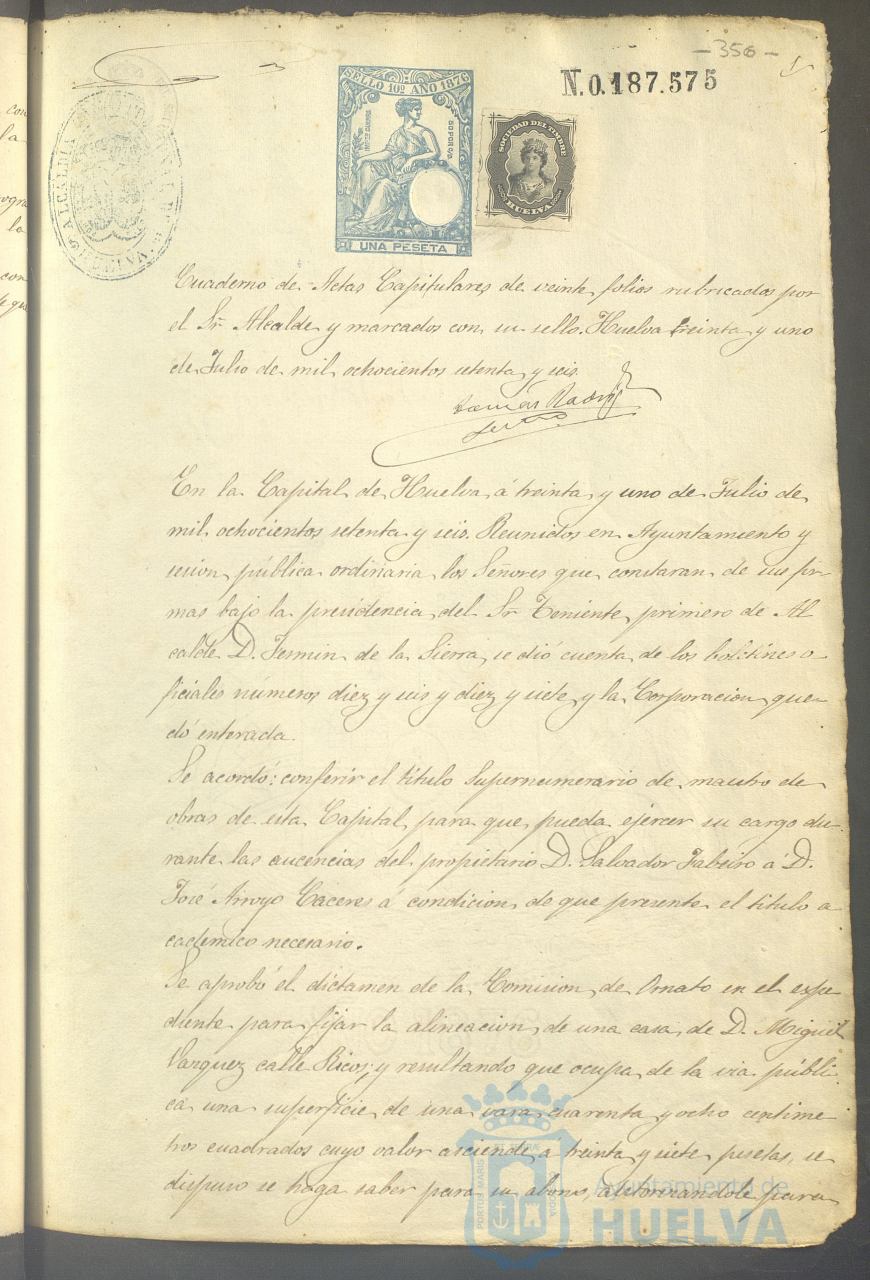 -356-
1
N.0.187.575
SELLO 10º AÑO 1876
50 POR C/O
UNA PESETA
SOCIEDAD DEL TIMBRE
HUELVA
ALCALDIA
HUELVA
Cuaderno de Actas Capitulares de veinte folios rubricados por
el Sr. Alcalde y marcados con su sello. Huelva treinta y uno
de Julio de mil ochocientos setenta y seis.
En la Capital de Huelva á treinta y uno de Julio de
mil ochocientos setenta y seis. Reunidos en Ayuntamiento y
sesion pública ordinaria los Señores que constaran de sus fir-
mas bajo la presidencia del Sr. Teniente primero de Al
calde D. Fermin de la Sierra, se dió cuenta de los boletines o-
ficiales números diez y seis y diez y siete y la Corporacion que-
dó enterada.
Se acordó: conferir el título Supernumerario de maestro de
obras de esta Capital para que pueda ejercer su cargo du-
rante las aucencias del propietario D. Salvador á D.
José Arroyo Cáceres á condicion de que presente el título a-
cadémico necesario.
Se aprobó el dictamen de la Comision de Ornato en el espe-
diente para fijar la alineacion de una casa de D. Miguel
Vazquez calle Ricos; y resultando que ocupa de la via públi-
ca una superficie de una vara cuarenta y ocho centime
tros cuadrados cuyo valor asciende a treinta y siete pesetas, se
dispuso se haga saber para su abono, autorizandole para
PORTUS MARIS
Ayuntamiento de
HUELVA